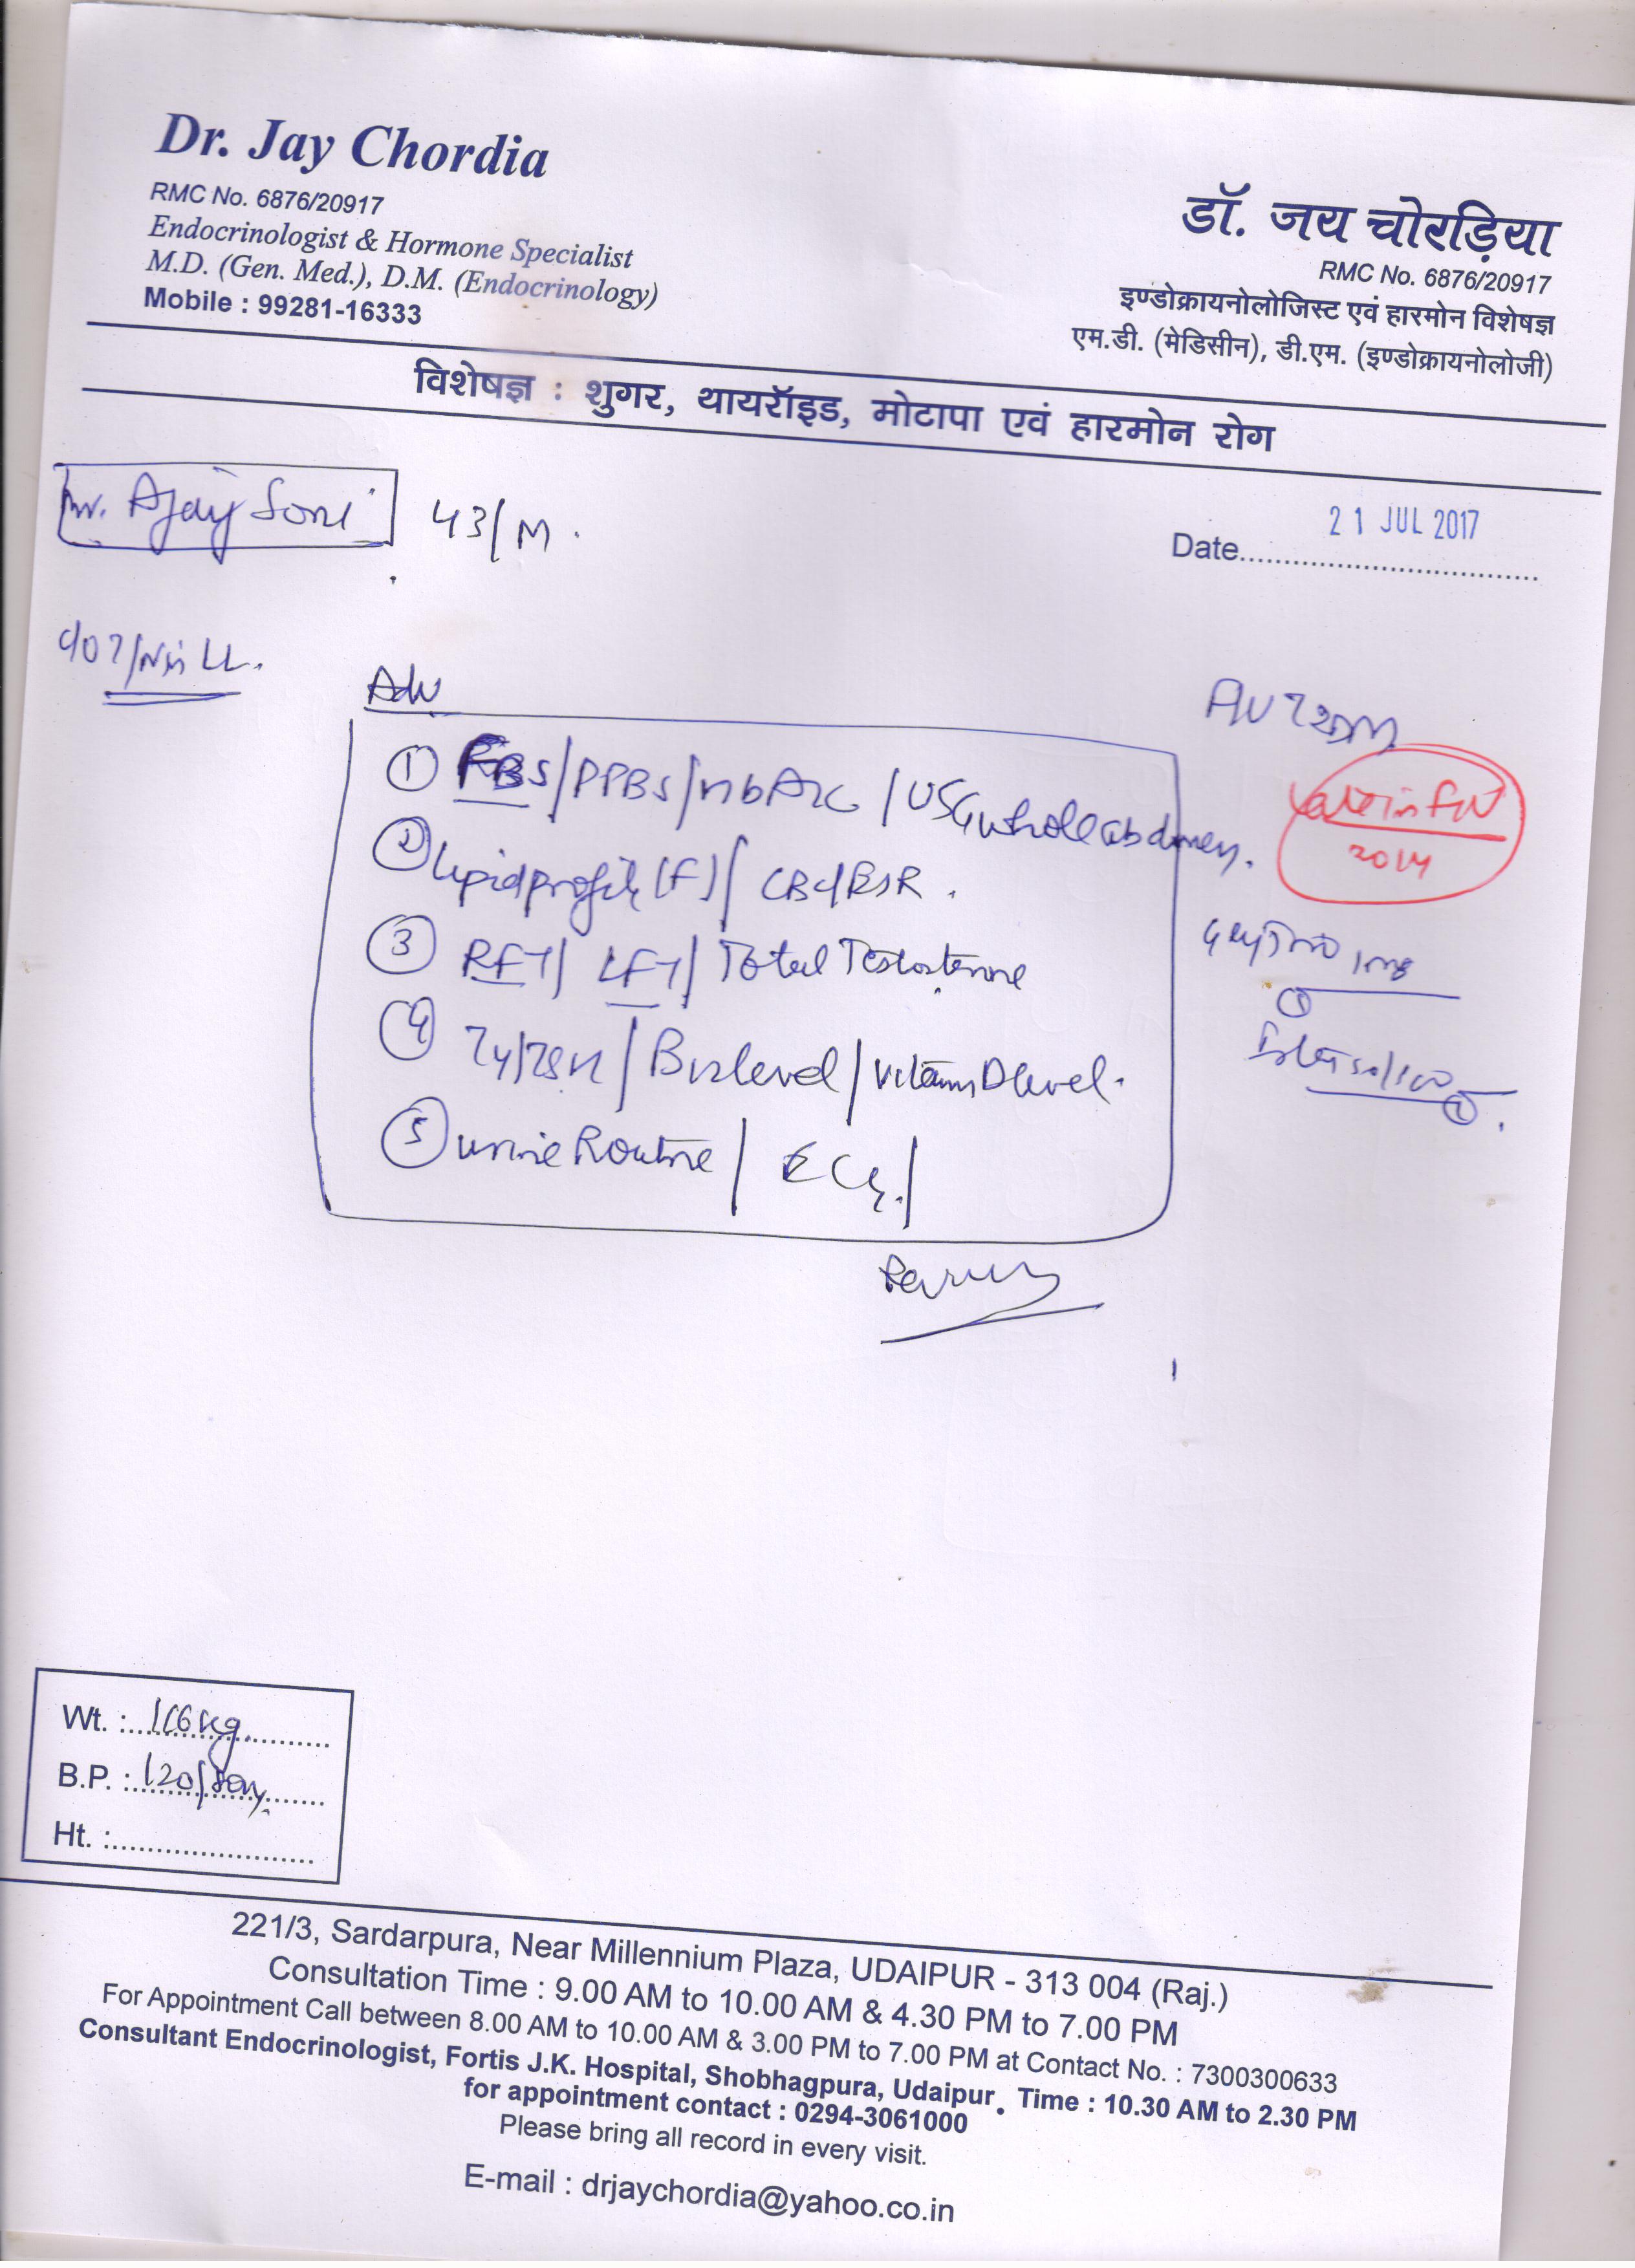 Dr. Jay Chordia
RMC No. 6876/20917
Endocrinologist & Hormone Specialist
M.D. (Gen. Med.), D.M. (Endocrinology)
Mobile : 99281-16333
डॉ. जय चोरड़िया
RMC No. 6876/20917
इण्डोक्रायनोलोजिस्ट एवं हारमोन विशेषज्ञ
एम.डी. (मेडिसीन), डी.एम. (इण्डोक्रायनोलोजी)
विशेषज्ञ : शुगर, थायरॉइड, मोटापा एवं हारमोन रोग
Mr. Ajay Soni 43/M.
Date 21 JUL 2017
LL.
Adv
① FBS/PPBS/HbA1C/USG whole abdomen.
② Lipid profile (F)/CBC/ESR.
③ RFT/LFT/Total Testosterone
④ T4/TSH/B12 level/Vitamin D level.
⑤ Urine Routine/ECG/
2014
1mg
①
50/500
②.
Wt. : 116 kg
B.P. : 120/80
Ht. :
221/3, Sardarpura, Near Millennium Plaza, UDAIPUR - 313 004 (Raj.)
Consultation Time : 9.00 AM to 10.00 AM & 4.30 PM to 7.00 PM
For Appointment Call between 8.00 AM to 10.00 AM & 3.00 PM to 7.00 PM at Contact No. : 7300300633
Consultant Endocrinologist, Fortis J.K. Hospital, Shobhagpura, Udaipur. Time : 10.30 AM to 2.30 PM
for appointment contact : 0294-3061000
Please bring all record in every visit.
E-mail : drjaychordia@yahoo.co.in